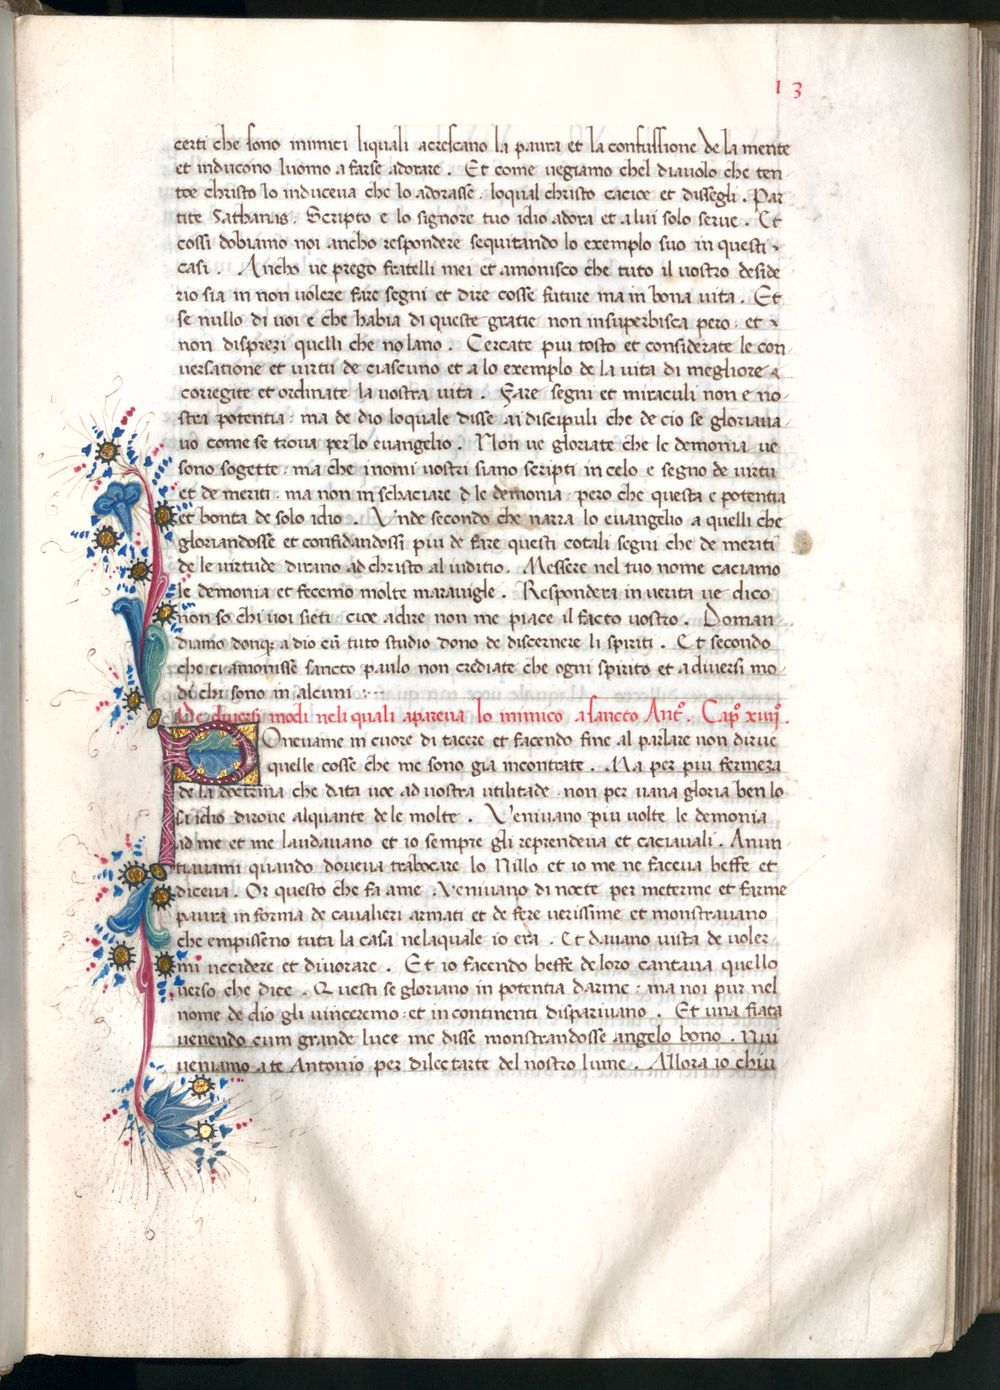 13
certi che sono inimici liquali acrescano la paura et la confussione de la mente
et inducono luomo a farse adorare . Et come vegiamo chel diavolo che ten-
toe christo lo induceva che lo adorasse . loqual christo cacioe et dissegli . Par
tite Sathanas . Scripto e lo signore tuo idio adora et a lui solo serve . Et
cossi dobiamo noi ancho respondere sequitando lo exemplo suo in questi
casi . Ancho ve prego fratelli mei et amonisco che tuto il vostro deside
rio sia in non volere fare segni et dire cosse future ma in bona vita . Et
se nullo di voi e che habia di queste gratie non insuperbisca pero . et
non disprezi quelli che no lano . Cercate piu tosto et considerate le con
versatione et virtu de ciascuno et a lo exemplo de la vita di megliore
corregite et ordinate la vostra vita . Fare segni et miraculi non e no-
stra potentia . ma de dio loquale disse ai discipuli che de cio se gloriava
vo come se trova per lo evangelio . Non ve gloriate che le demonia ve
sono sogette . ma che i nomi vostri siano scripti in celo e segno de virtu
et de meriti . ma non in schaciare d le demonia . pero che questa e potentia
et bonta de solo idio . Unde secondo che narra lo evangelio a quelli che
gloriandosse et confidandossi piu de fare questi cotali segni che de meriti
de le virtude dirano ad christo al iuditio . Messere nel tuo nome caciamo
le demonia et fecemo molte maravigle . Respondera in verita ve dico
non so chi voi sieti . cioe a dire non me piace il facto vostro . Doman-
diamo donqz a dio cu tuto studio dono de discernere li spiriti . Et secondo
che ci amonisse sancto paulo non crediate che ogni spirito et a diversi mo-
di chi sono in alcuni .
De diversi modi neli quali apareva lo inimico a sancto Anto . Capo xiiij .
POnevame in cuore di tacere et facendo fine al parlare non dirve
quelle cosse che me sono gia incontrate . Ma per piu fermeza
de la doctrina che data voe ad vostra utilitade . non per vana gloria ben lo
sa idio dirove alquante de le molte . Venivano piu volte le demonia
ad me et me laudavano et io sempre gli reprendeva et caciavali . Anun
tiavami quando doveva trabocare lo Nillo et io me ne faceva beffe et
diceva . Or questo che fa ame . Venivano di nocte per meterme et farme
paura in forma de cavalieri armati et de fere verissime et monstravano
che empisseno tuta la casa nelaquale io era . Et davano vista de voler-
mi uccidere et divorare . Et io facendo beffe de loro cantava quello
verso che dice . Questi se gloriano in potentia darme . ma noi pur nel
nome de dio gli vinceremo . et in continenti disparivano . Et una fiata
venendo cum grande luce me disse monstrandosse angelo bono . Nui
veniamo a te Antonio per dilectarte del nostro lume . Allora io chiu